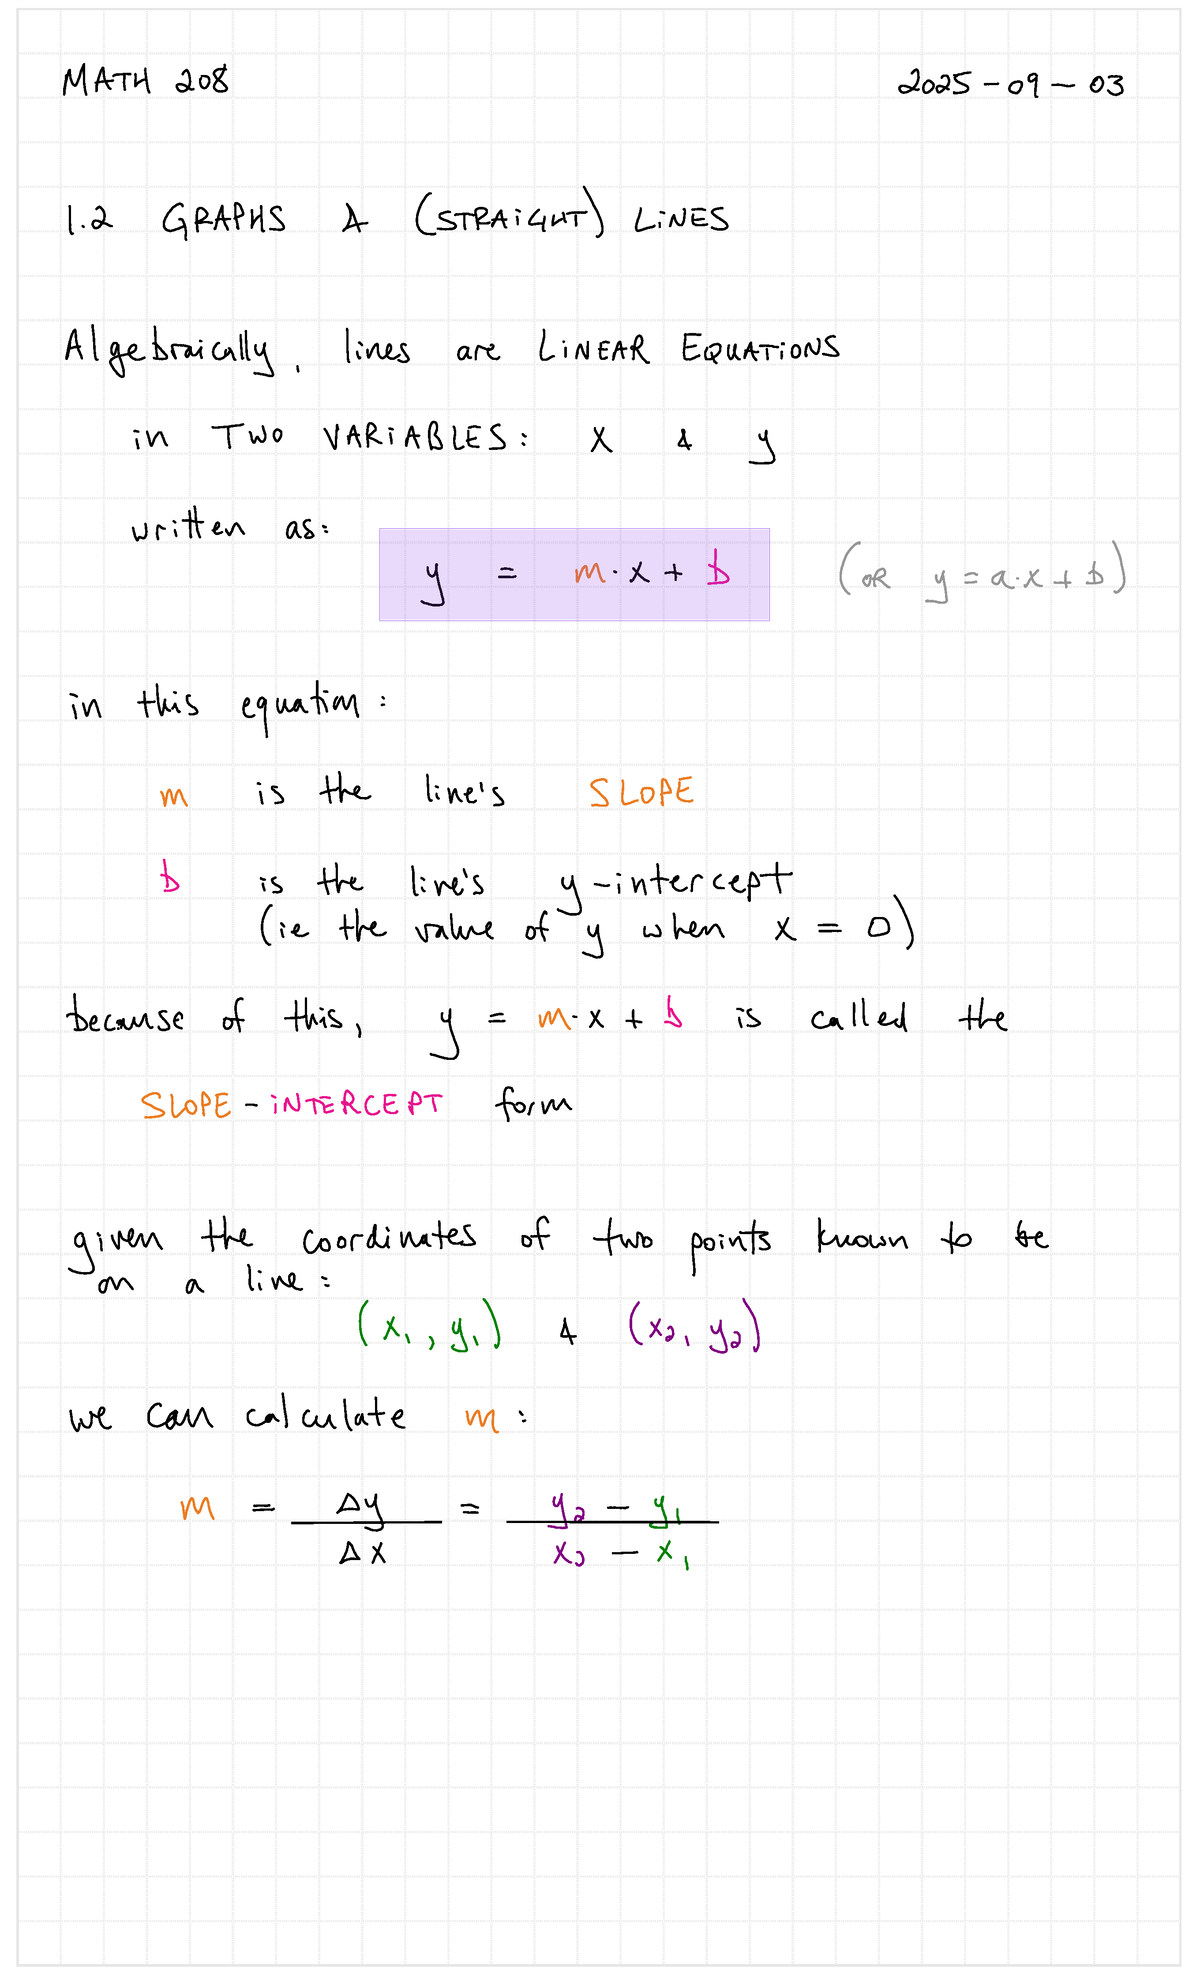 MATH 208 2025-09-03
1.2 GRAPHS & (STRAIGHT) LINES
Algebraically, lines are LINEAR EQUATIONS
in TWO VARIABLES: x & y
written as:
y = m·x + b (OR y = a·x + b)
in this equation:
m is the line's SLOPE
b is the line's y-intercept
(ie the value of y when x = 0)
because of this, y = m·x + b is called the
SLOPE-INTERCEPT form
given the coordinates of two points known to be
on a line:
(x₁, y₁) & (x₂, y₂)
we can calculate m:
m = Δy/Δx = (y₂ − y₁)/(x₂ − x₁)